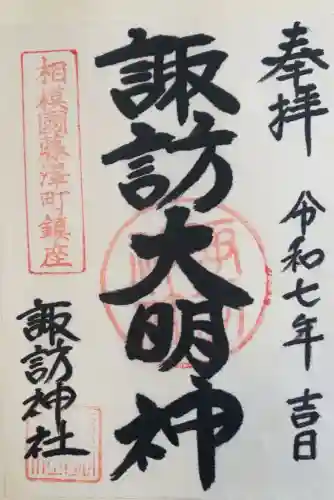 奉拝
令和七年吉日
諏訪大明神
相模國藤澤町鎮座
諏訪神社